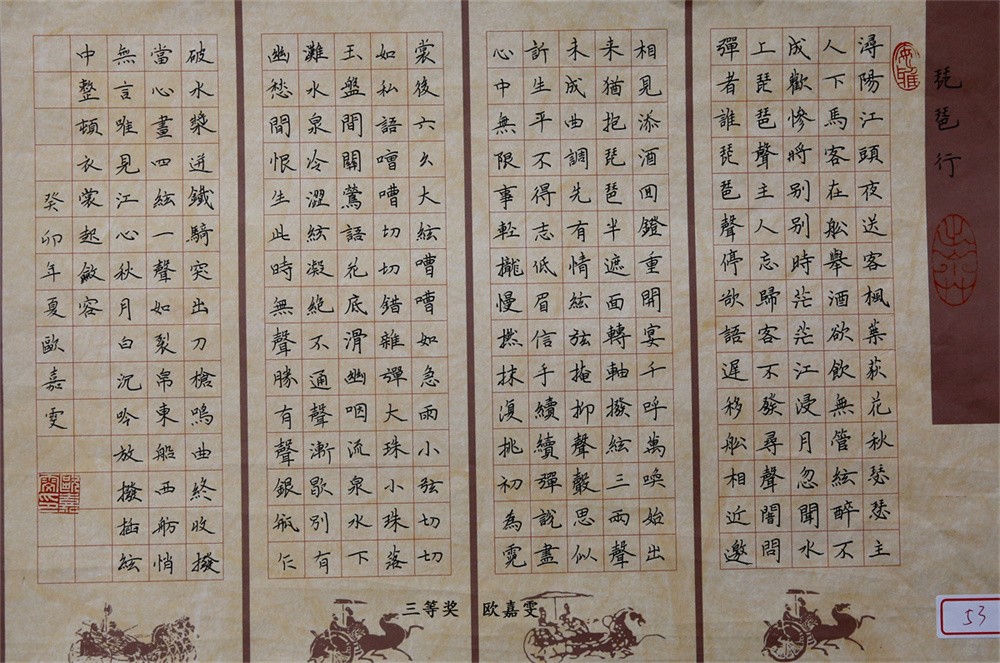 琵琶行
潯陽江頭夜送客楓葉荻花秋瑟瑟主
人下馬客在舩舉酒欲飲無管絃醉不
成歡慘將别别時茫茫江浸月忽聞水
上琵琶聲主人忘歸客不發尋聲闇問
彈者誰琵琶聲停欲語遲移舩相近邀
相見添酒回鐙重開宴千呼萬喚始出
来猶抱琵琶半遮面轉軸撥絃三兩聲
未成曲調先有情絃弦掩抑聲聲思似
訴生平不得志低眉信手續續彈說盡
心中無限事輕攏慢撚抹復挑初為霓
裳後六幺大絃嘈嘈如急雨小弦切切
如私語嘈嘈切切錯雜彈大珠小珠落
玉盤間關鶯語花底滑幽咽流泉水下
灘水泉冷澀絃凝絶不通聲漸歇别有
幽愁間恨生此時無聲勝有聲銀瓶乍
破水漿迸鐵騎突出刀槍鳴曲終收撥
當心畫四絃一聲如裂帛東船西舫悄
無言唯見江心秋月白沉吟放撥插絃
中整頓衣裳起斂容
癸卯年夏歐嘉雯
三等奖 欧嘉雯
53